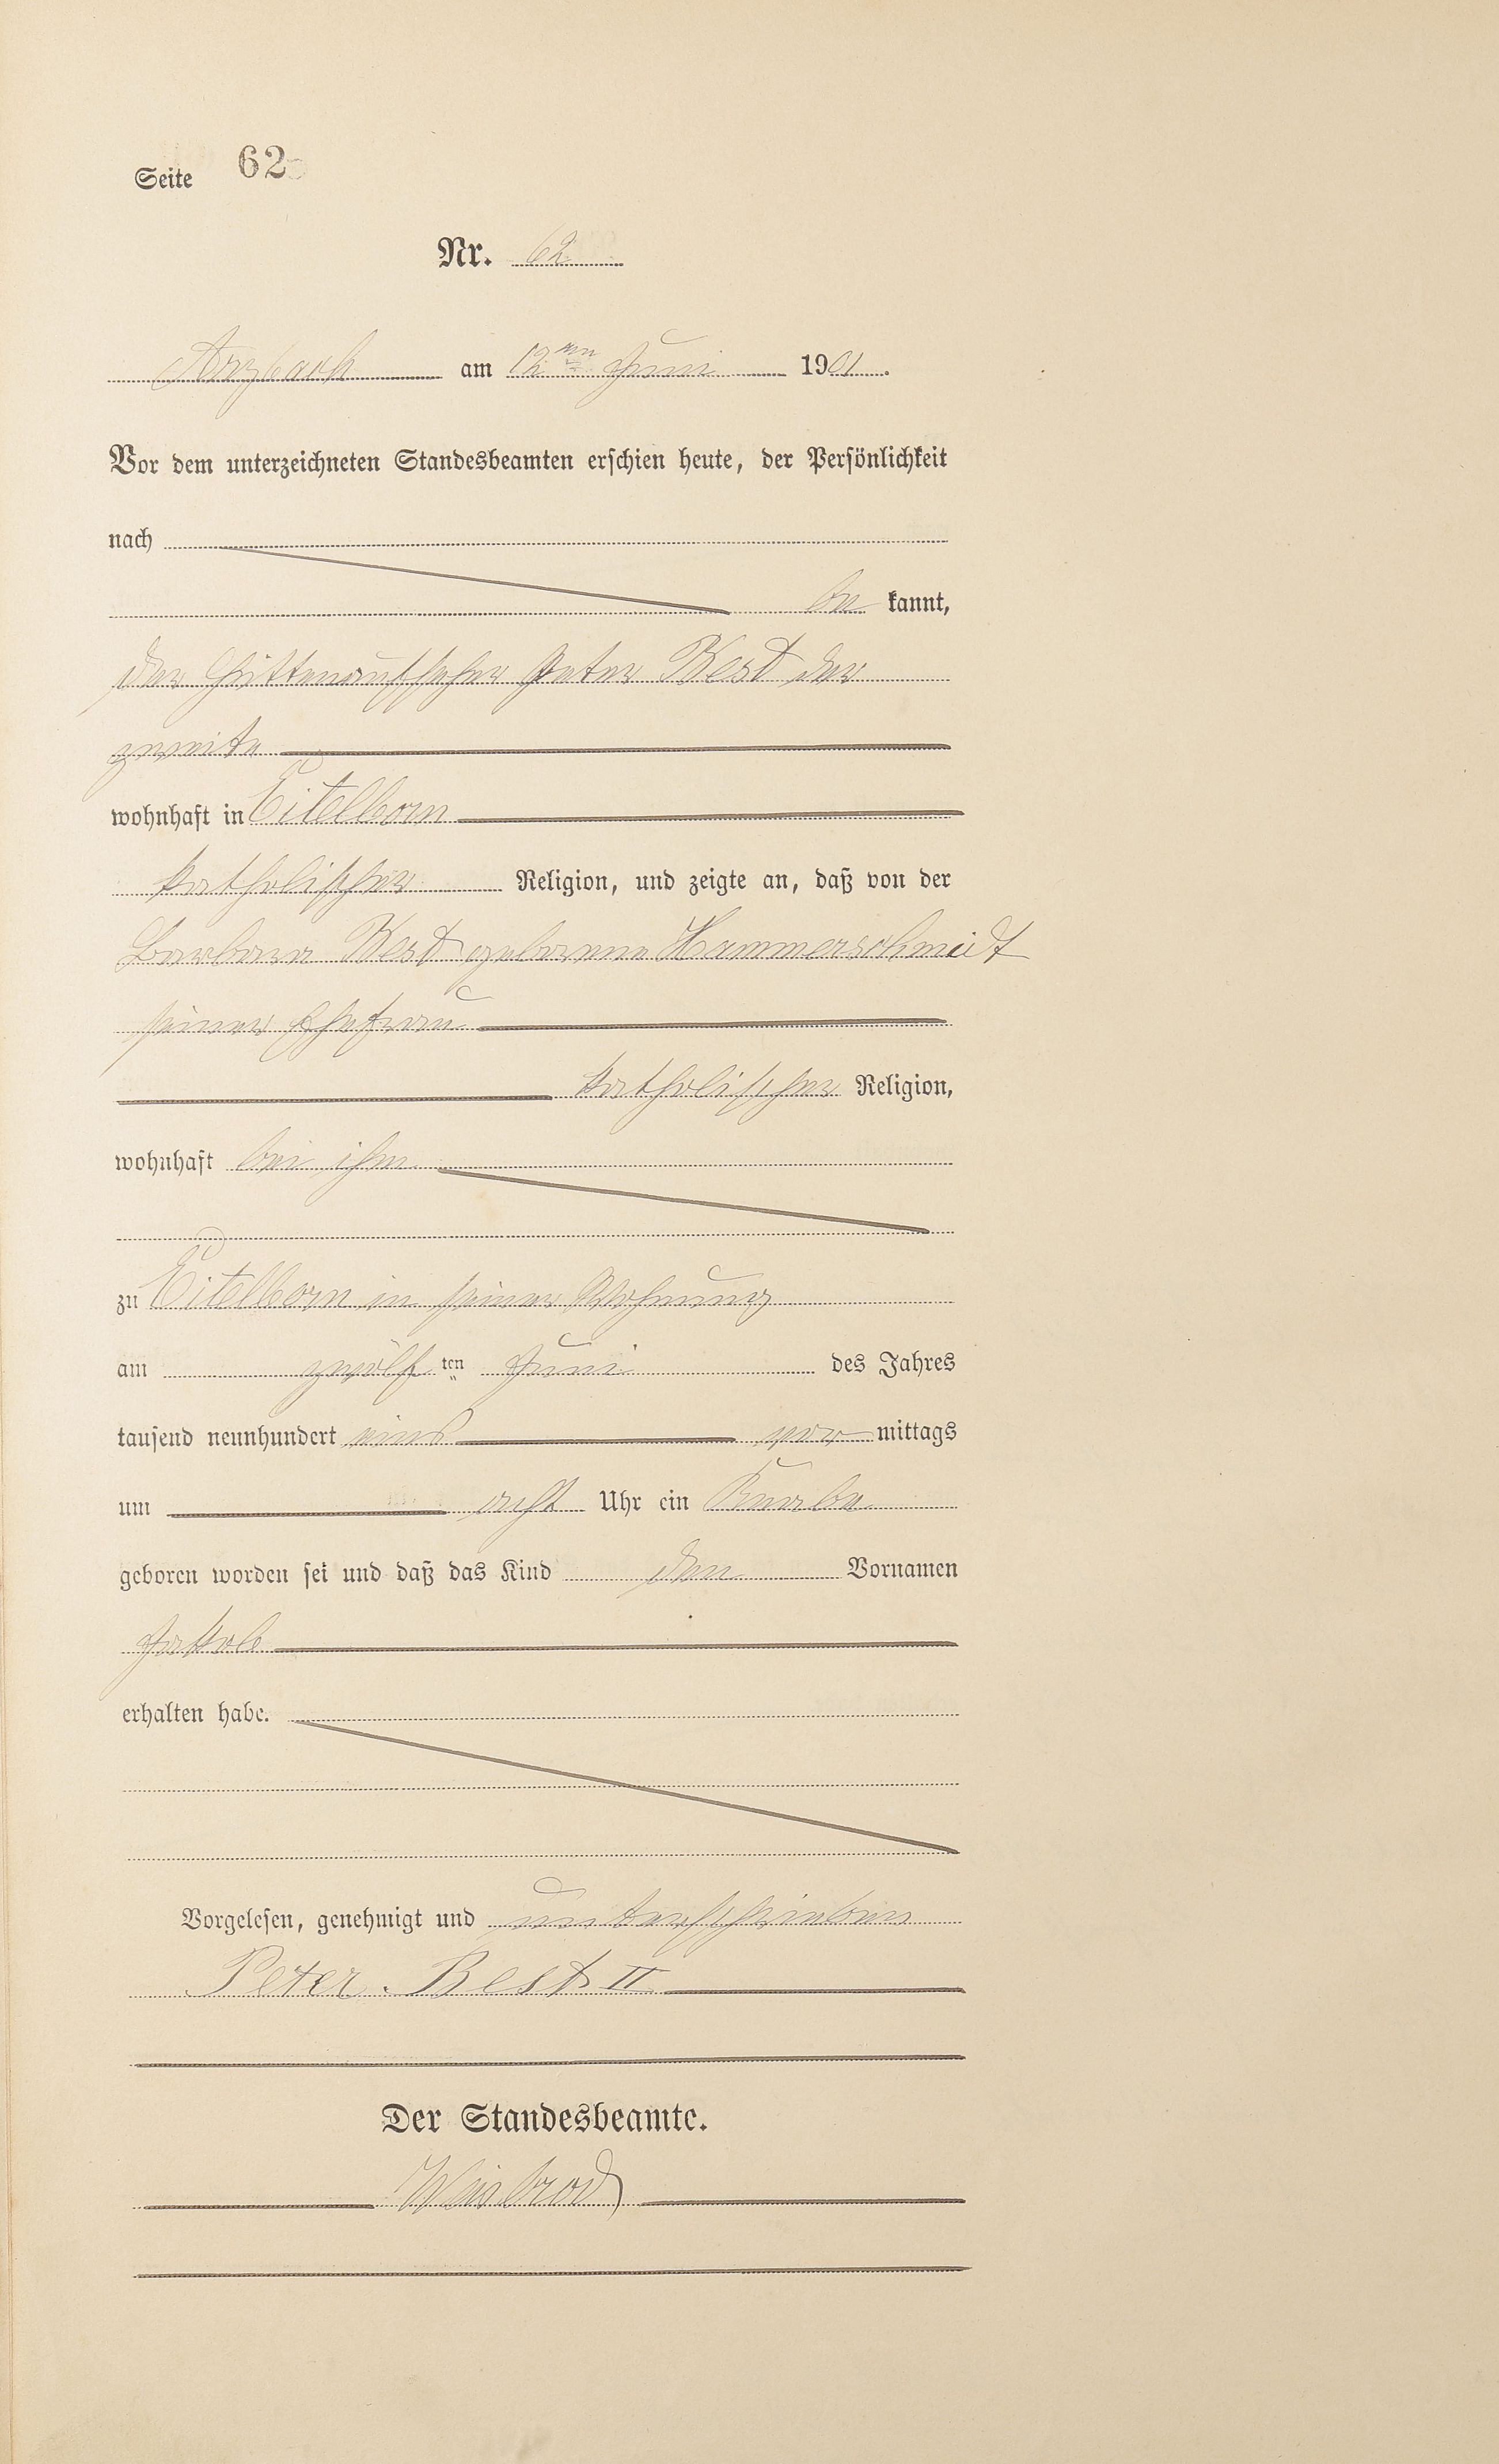 Seite 62
Nr. 62
Arzbach am 12ten Juni 1901.
Vor dem unterzeichneten Standesbeamten erschien heute, der Persönlichkeit
nach
be kannt,
der Hüttenaufseher Peter Best der
zweite
wohnhaft in Eitelborn
katholischer Religion, und zeigte an, daß von der
Barbara Best geborene Hammerschmidt
seiner Ehefrau
katholischer Religion,
wohnhaft bei ihm
zu Eitelborn in seiner Wohnung
am zwölf ten Juni des Jahres
tausend neunhundert eins vor mittags
um acht Uhr ein Knabe
geboren worden sei und daß das Kind den Vornamen
Jakob
erhalten habe.
Vorgelesen, genehmigt und unterschrieben
Peter. Best II
Der Standesbeamte.
Weisbrod